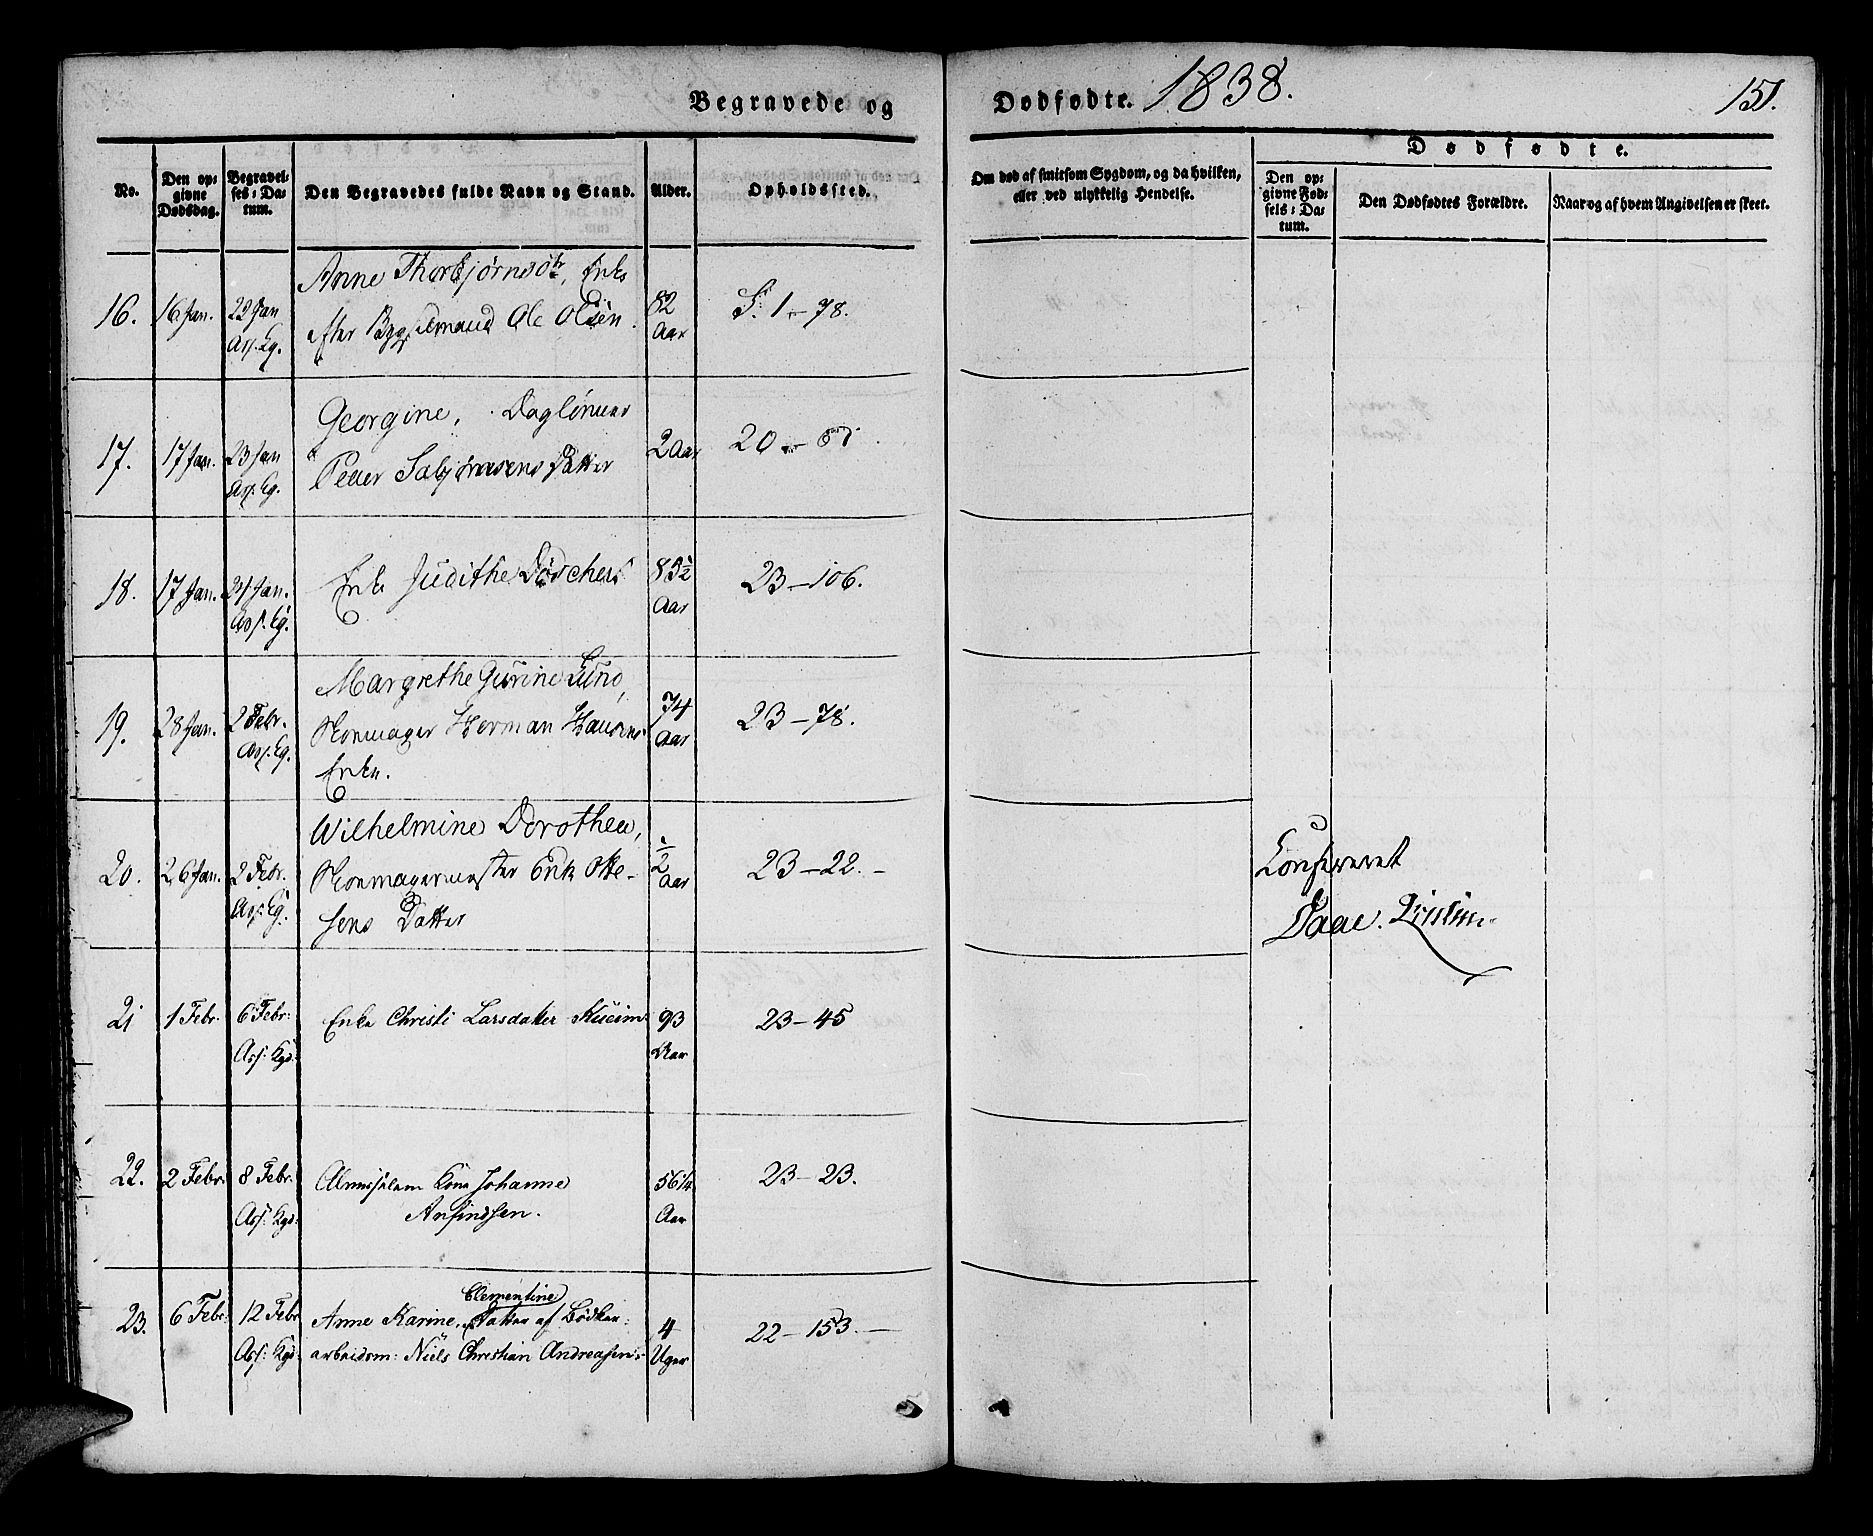 Begravede og Dødfødte. 1838.
151.
No.
Den opgivne Dødsdag.
Begravelses-Datum.
Den Begravedes fulde Navn og Stand.
Alder.
Opholdssted.
Om død af smitsom Sygdom, og da hvilken,
eller ved ulykkelig Hendelse.
Dødfødte.
Den opgivne Fødsels-Datum.
Den Dødfødtes Forældre.
Naar og af hvem Angivelsen er skeet.
16. 16 Jan. 22 Jan Ass. Kg.
Anne Thorbjørnsdtr, Enke
efter Ole Olsen.
82 Aar
S. 1 - 78.
17. 17 Jan. 23 Jan Ass. Kg.
Georgine, Daglønner
Peder Datter
2 Aar
20 -
18. 17 Jan. Jan. Ass. Kg.
Enke Judithe
83½ Aar
23 - 106.
19. 28 Jan. 2 Febr. Ass. Kg.
Margrethe Gurine Lund,
Skomager Herman Hansens
Enke.
74 Aar
23 - 78.
20. 26 Jan. 2 Febr. Ass. Kg.
Wilhelmine Dorothea,
Skomagermester Erik Otte-
sens Datter
½ Aar
23 - 22. -
Confereret
Daae.
21 1 Febr. 6 Febr: Ass: Kgd:
Enke Christi Larsdatter
93 Aar
23 - 45
22. 2 Febr: 8 Febr: Ass: Kgd:
Almisselem Kone Johanne
Anfindsen.
56¼ Aar
23 - 23.
23. 6 Febr: 12 Febr Ass: Kgd:
Clementine
Anne Karine, Datter af Bødker-
arbeidsm: Niels Christian Andreasen
4 Uger
22 - 153. -